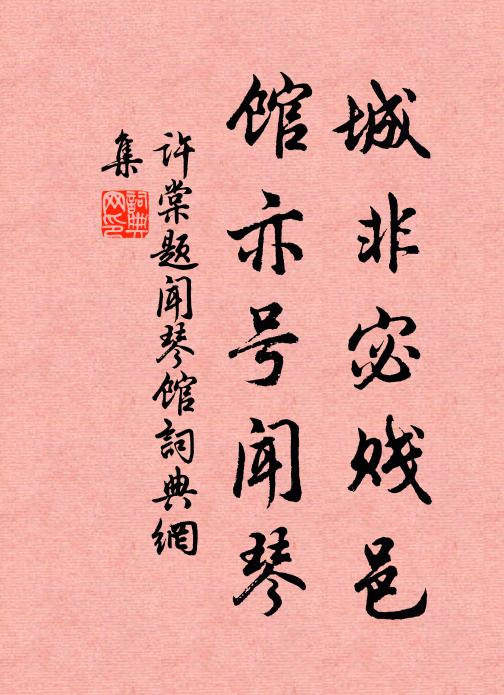 城非宓贱邑
馆亦号闻琴
许棠题闻琴馆詞典網
集
詞典
网印